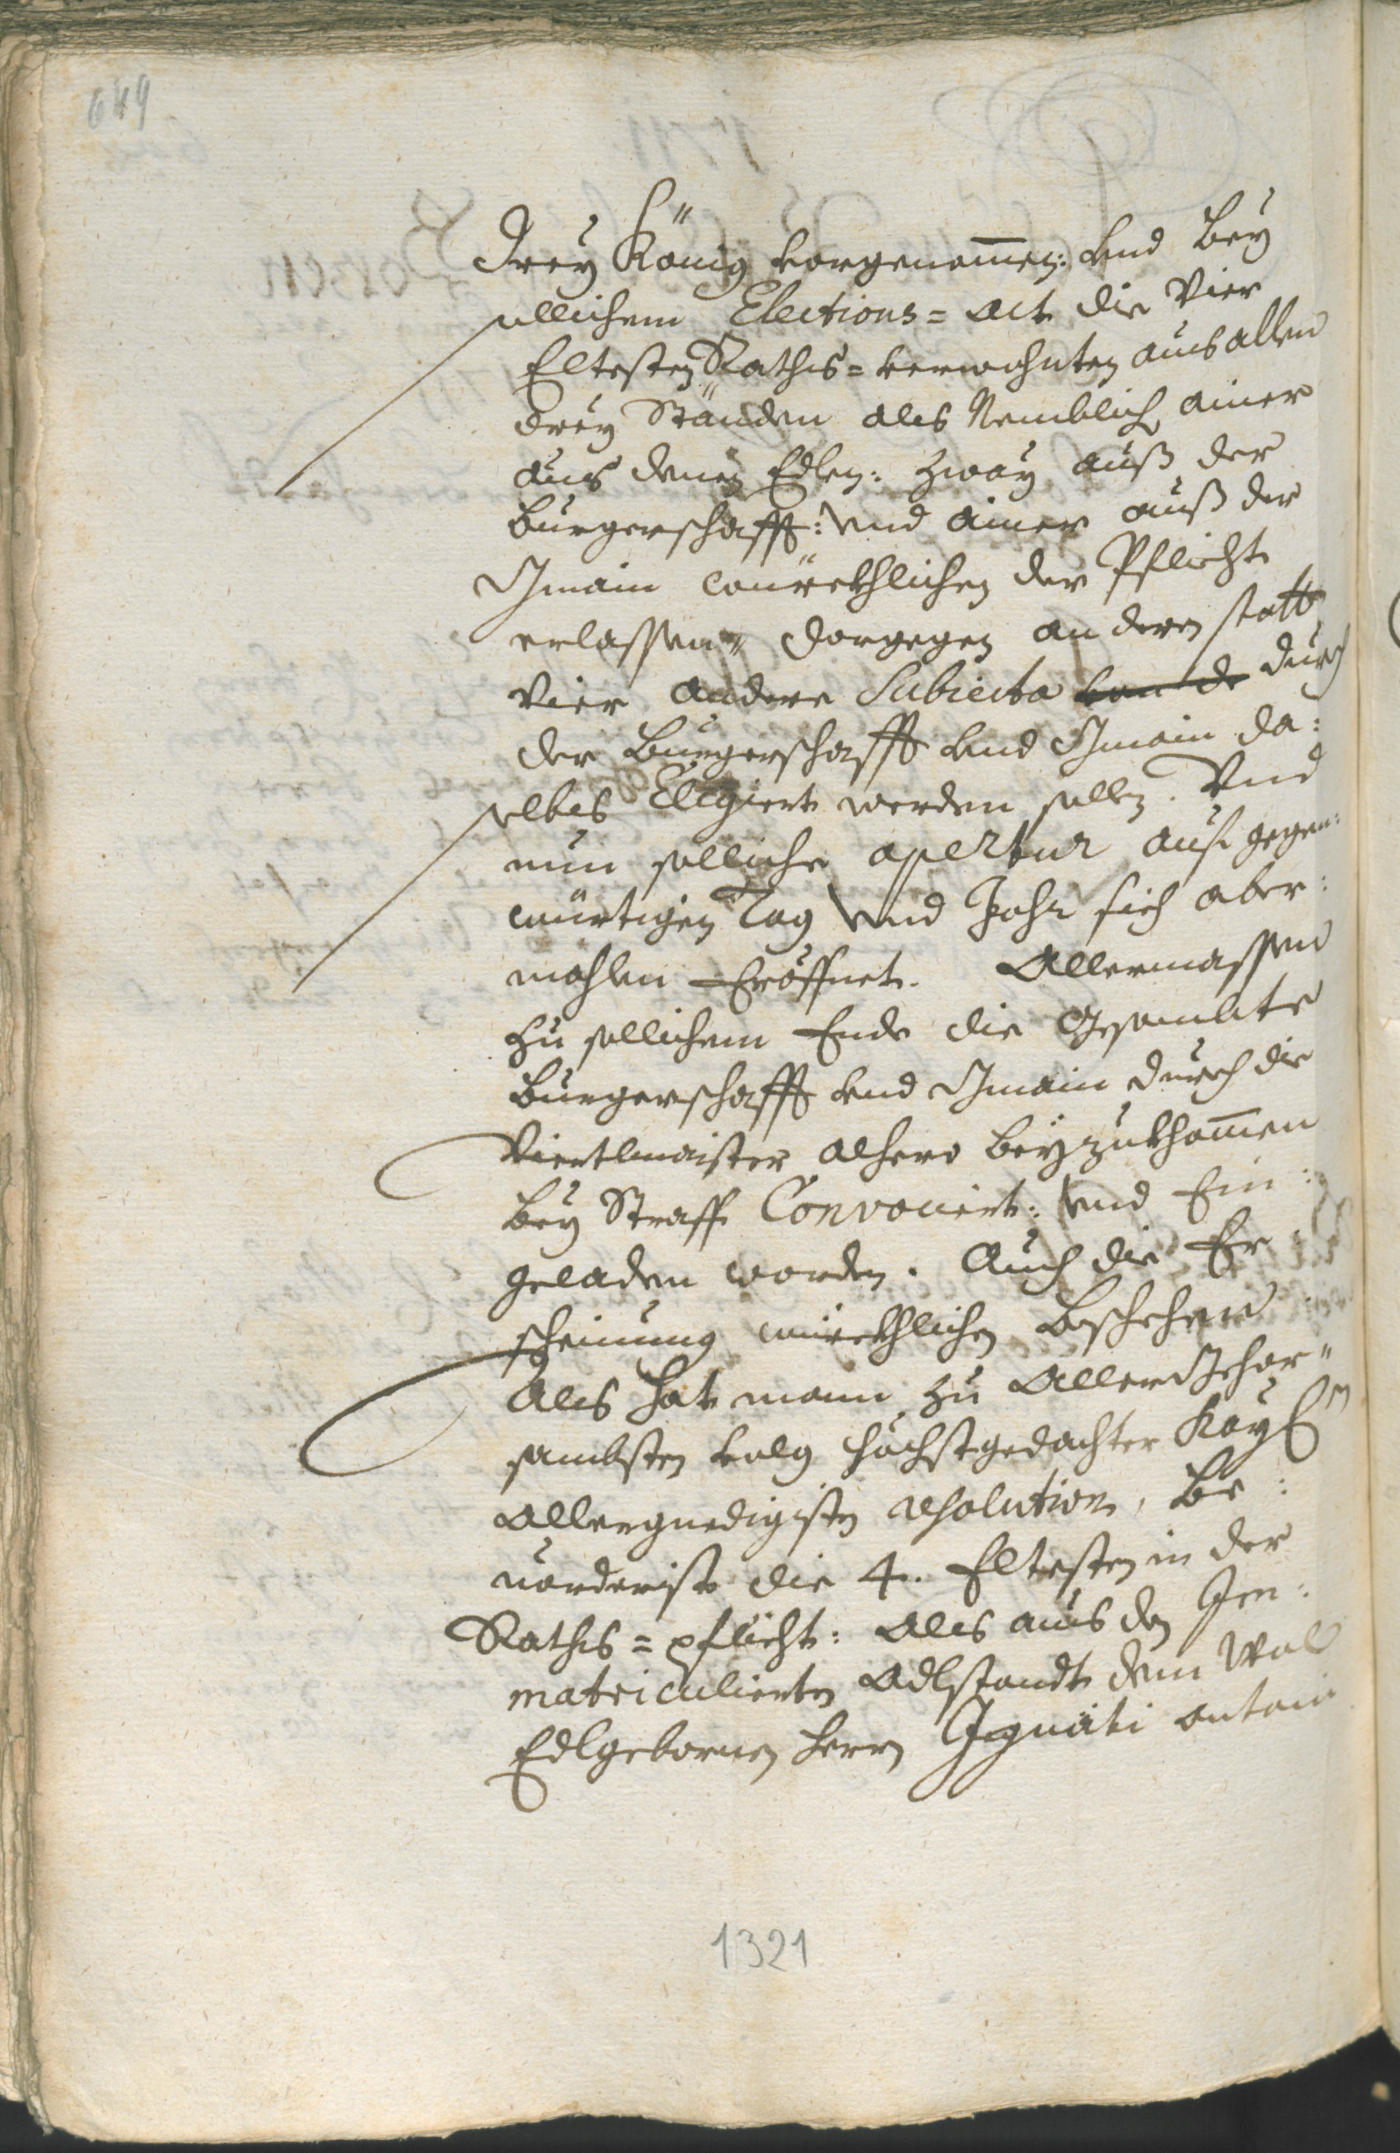 649
Drey König vorgenomen: vnd bey
sollichem Elections=Act die Vier
Eltesten Rathis=verwohnten aus allen
drey Ständen als Nemblich ainer
aus denen Edlen: zway auß der
Burgerschafft: vnd ainer auß der
Gmain würckhlichen der Pflicht
erlassen, dargegen an deren statt
Vier andere Subiecta durch
der Burgerschafft vnd Gmain da:
selbs Eligiert werden sollen. Vnd
nun solliche apertur auf gegen:
würtigen Tag vnd Jahr sich aber:
mahlen Eröffnet. Allermassen
zu sollichem Ende die Gesambte
Burgerschafft vnd Gmain durch die
Viertlmaister alhero beyzukhomen
bey Straff Convociert: vnd Ein:
geladen worden. Auch die Er:
scheinung würckhlichen beschehen
Als hat mann zu Aller Gehor"
sambsten volg höchstgedachter Kay
Allergnedigisten resolution, Be:
uorderist die 4. Eltesten in der
Rathis=pflicht: Als aus den Im:
matriculierten Adlstandt dem Wol
Edlgebornen Herrn Ignati Antoni
1321